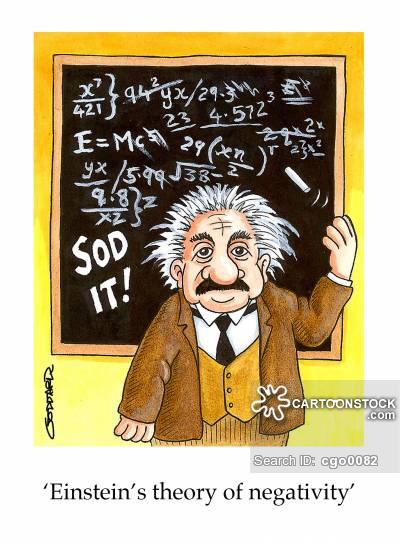 x⁷
421 } 94² yx/29.3
23 4.572³
E=Mc
29(xn
2)ʳ
2x
yx /599 √38-
9.8
xz } z
SOD
IT!
GODDARD
CARTOONSTOCK
.com
Search ID: cgo0082
‘Einstein’s theory of negativity’